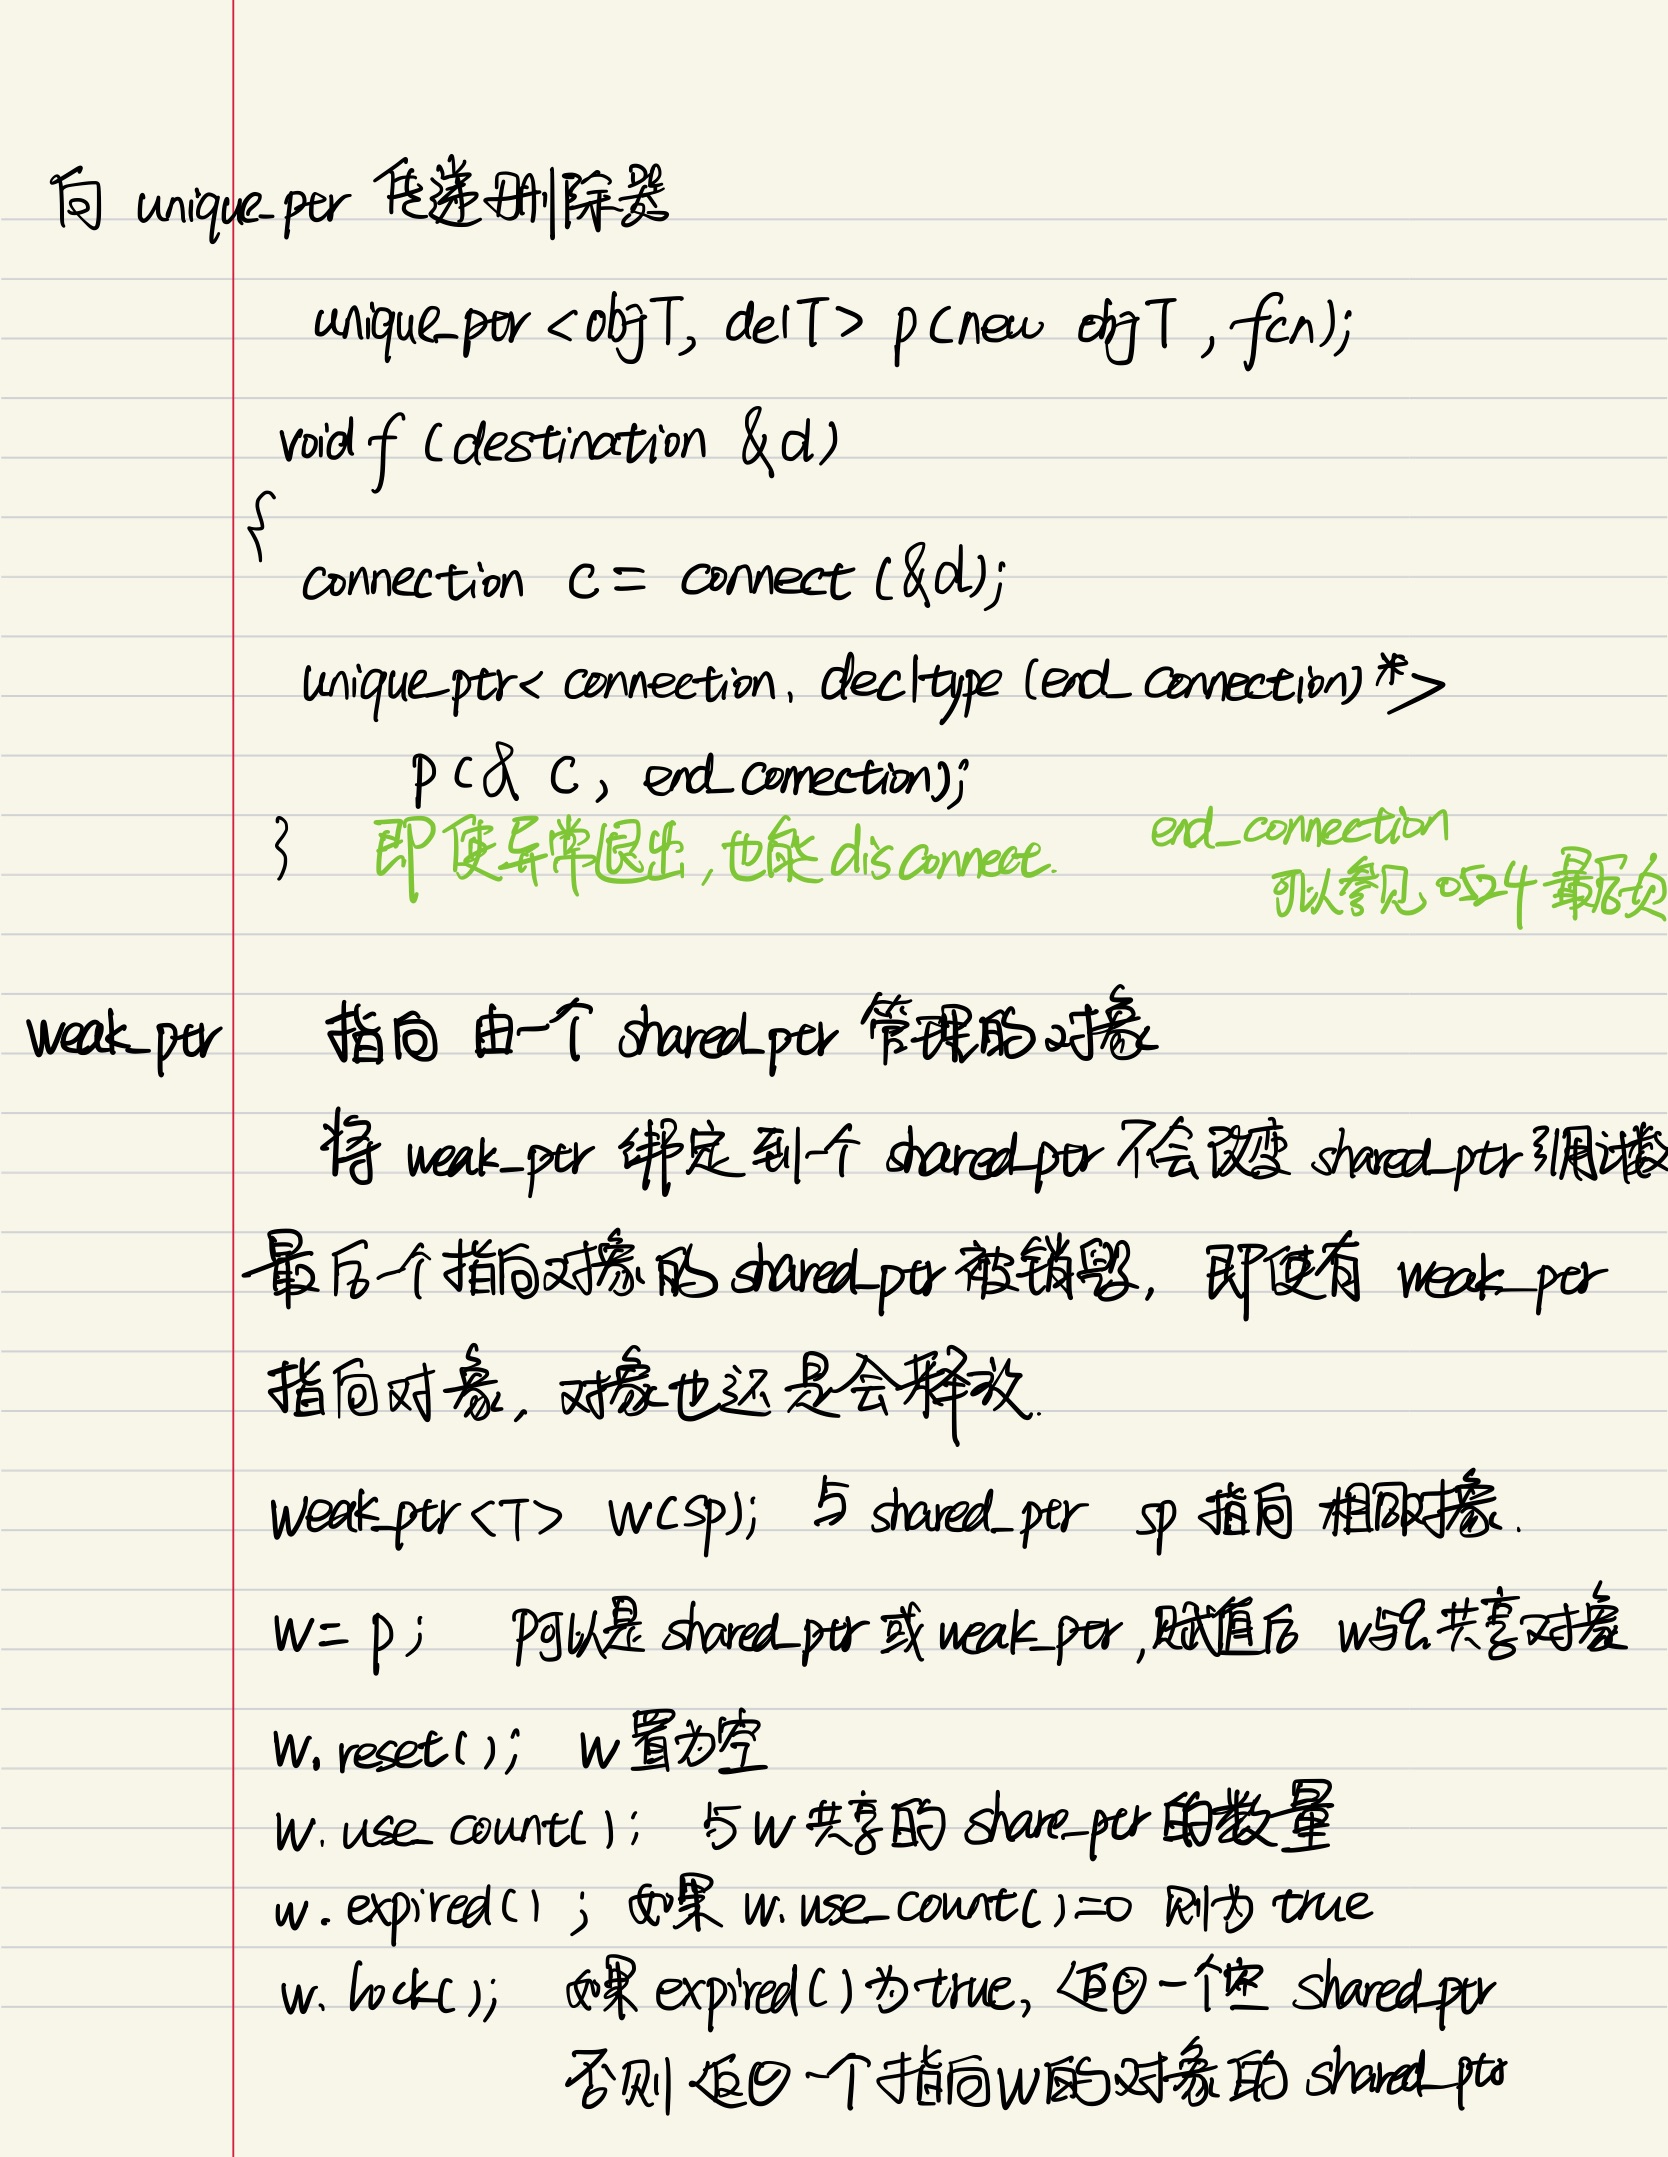 向 unique_ptr 传递删除器
unique_ptr <objT, delT> p(new objT, fcn);
void f (destination &d)
{
connection c = connect (&d);
unique_ptr< connection, decltype (end_connection)*>
p(& c, end_connection);
} 即使异常退出,也能 disconnect.
end_connection
可以参见 0524 最后页
weak_ptr 指向 由一个 shared_ptr 管理的对象
将 weak_ptr 绑定到一个 shared_ptr 不会改变 shared_ptr 引用计数
最后一个指向对象的 shared_ptr 被销毁, 即使有 weak_ptr
指向对象, 对象也还是会释放.
weak_ptr<T> w(sp); 与 shared_ptr sp 指向 相同对象.
w = p; p可以是 shared_ptr 或 weak_ptr, 赋值后 w与p共享对象
w.reset(); w 置为空
w.use_count(); 与 w 共享的 share_ptr 的数量
w.expired(); 如果 w.use_count()=0 则为 true
w.lock(); 如果 expired()为 true, 返回一个空 shared_ptr
否则 返回 一个 指向w的对象的 shared_ptr